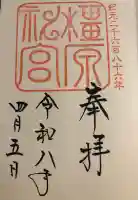 紀元二千六百八十六年
奉拝
橿原神宮
令和八年
四月五日